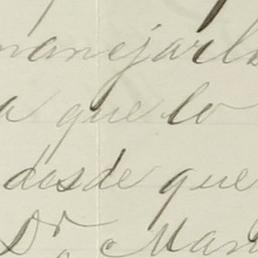 manejarl
a que lo
desde que
Dr Man